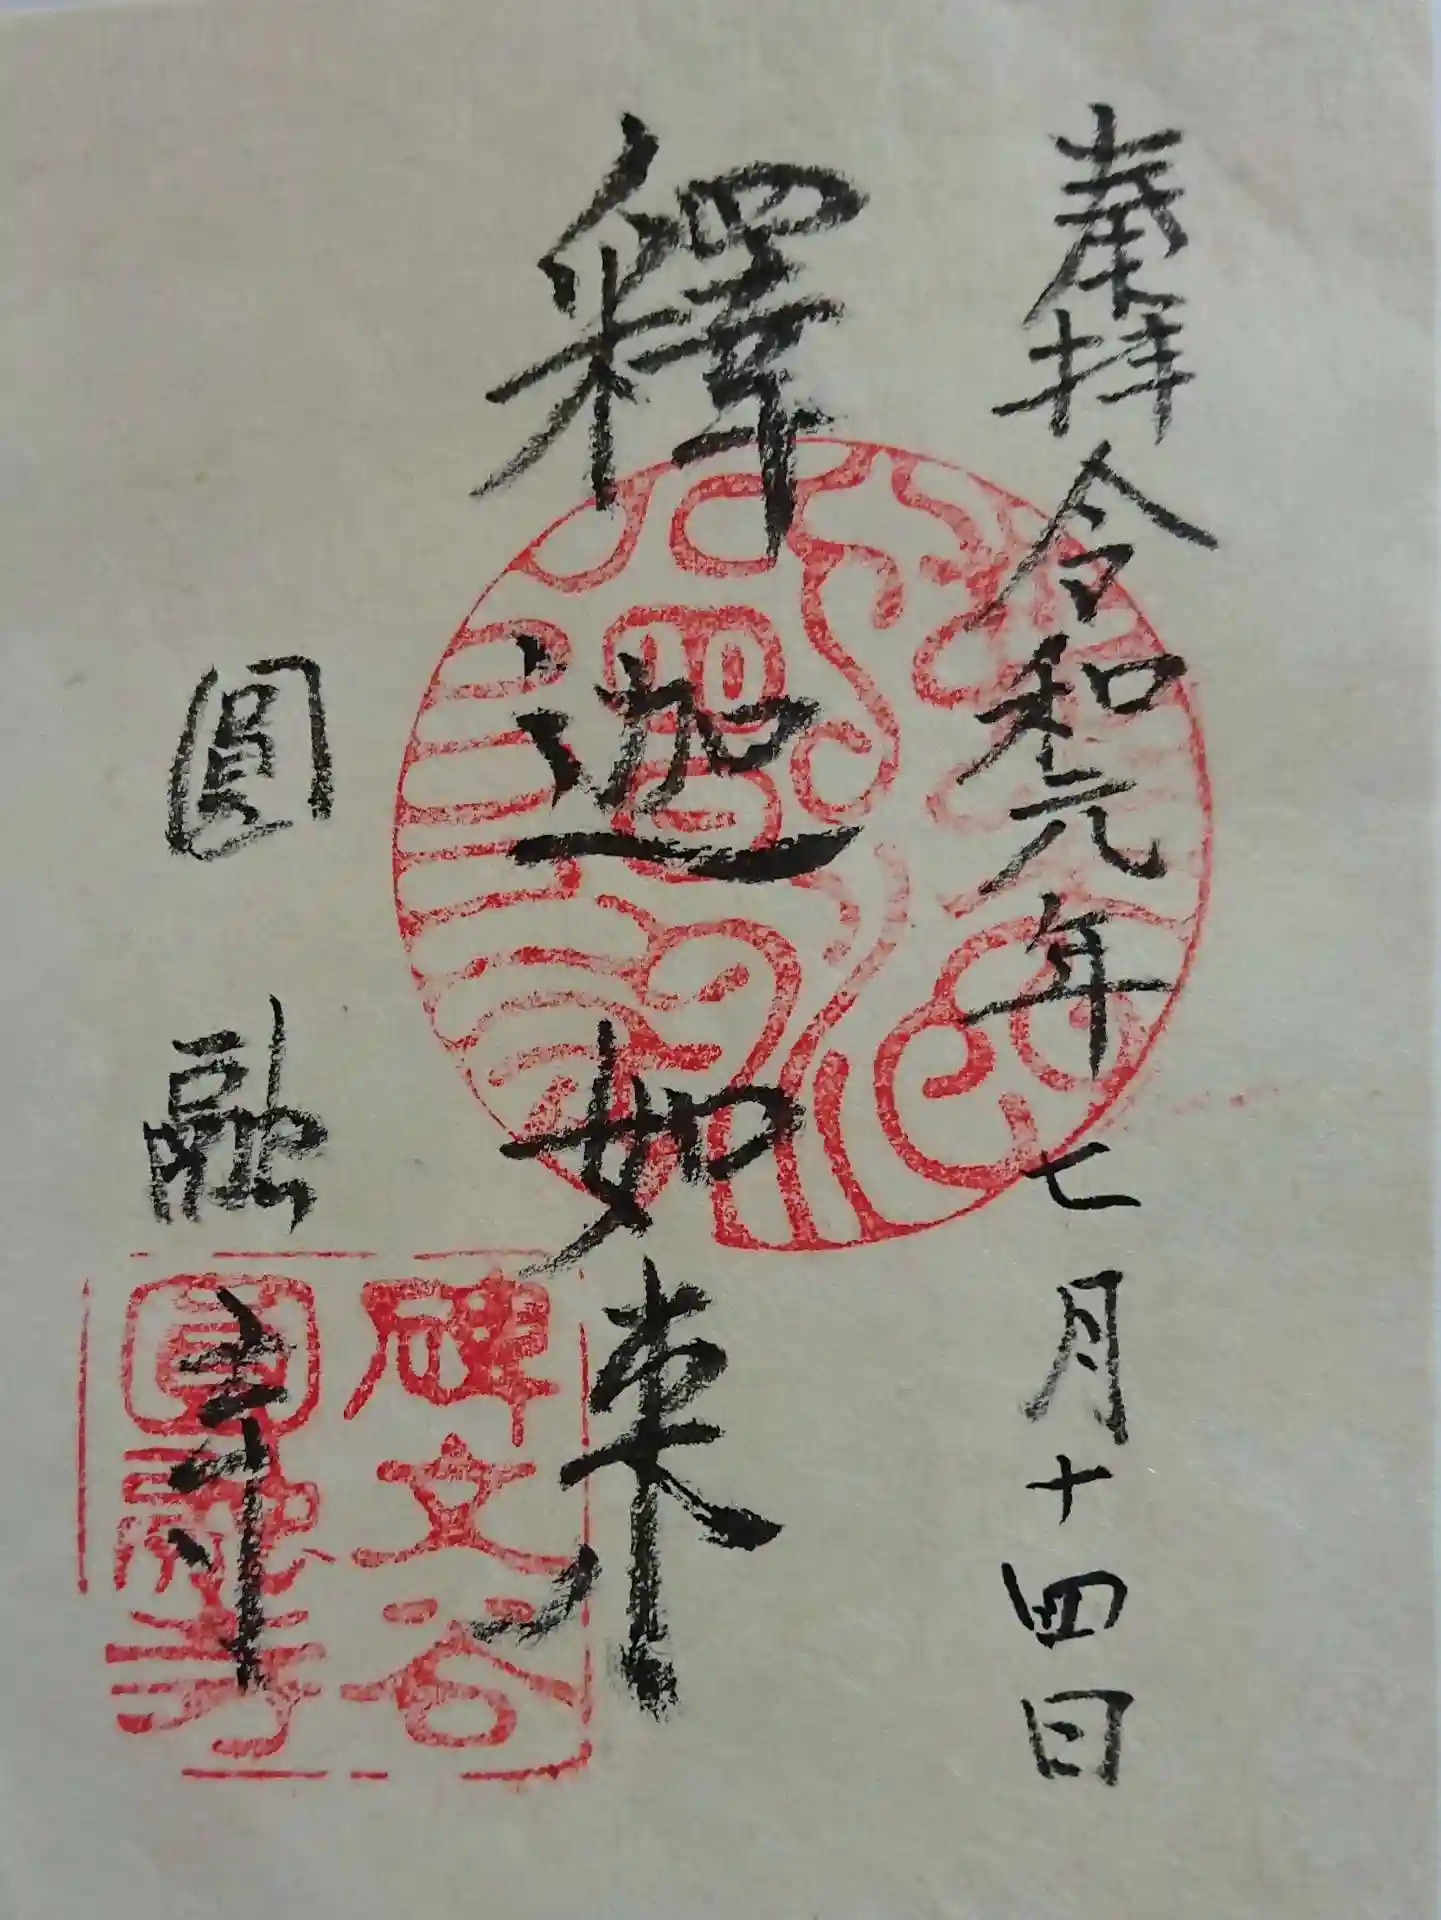 奉拝令和元年七月十四日
釋迦如来
圓融寺
碑文谷
圓融寺